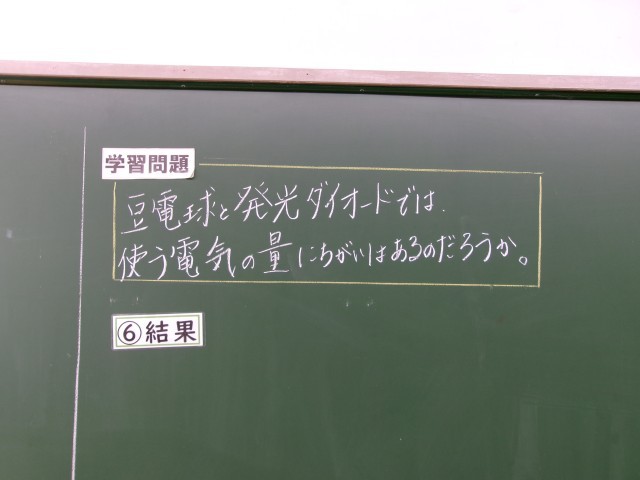 学習問題
豆電球と発光ダイオードでは、
使う電気の量にちがいはあるのだろうか。
⑥結果